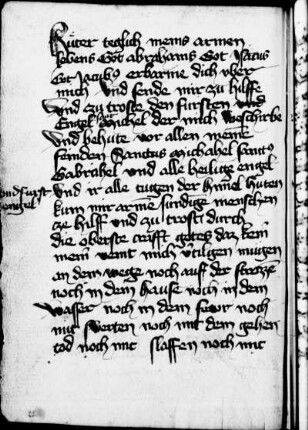 teglich meins armen
lebens Got abrahams Got ysacus
Got Jacobus erbarme dich vber
mich und sende mir zu hilffe
Und zu troste den fursten und
Engel Michel der mich
Und behute vor allen meine
feinden Sanctus Michahel
Gabrahel und alle heilige engel
Und ir alle der himel
kum mir arme sundige menschen
ze hilff und zu trost durch
die oberste crafft gotes daz kein
mein veint mich mugen
an dem wege noch auf der strasze
noch in dem hause noch in dem
wasser noch in dem fiwr noch
mit swerten noch mit dem gehen
tod noch mit slaffen noch mit